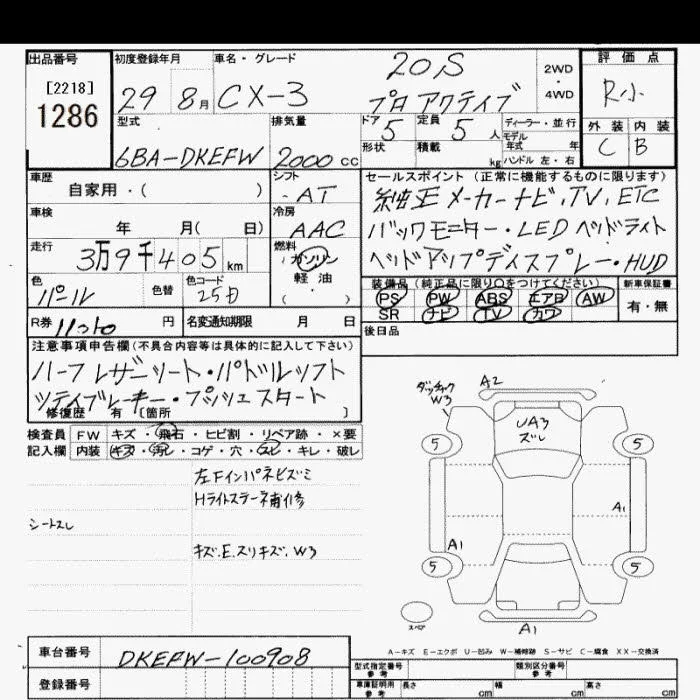 出品番号
[2218]
1286
初度登録年月
29 8月
車名・グレード
CX-3
20S
プロアクティブ
2WD
・
4WD
評価点
R小
外装 内装
C B
型式
6BA-DKEFW
排気量
2000 cc
ドア
5
定員
5 人
ディーラー・並行
モデル年式 年
形状
積載 kg
ハンドル 左・右
車歴
自家用・( )
シフト
AT
車検
年 月( 日)
冷房
AAC
走行
3万9千405km
燃料
ガソリン
軽油
( )
色
パール
色替
色コード
25D
R券
円
名変通知期限 月 日
セールスポイント(正常に機能するものに限ります)
純正メーカーナビ, TV, ETC
バックモニター・LEDヘッドライト
ヘッドアップディスプレー・HUD
装備品(純正品に限り○をつけてください)
PS PW ABS エアB AW
SR ナビ TV カワ
新車保証書
有・無
後日品
注意事項申告欄(不具合内容等は具体的に記入して下さい)
ハーフレザーシート・パドルシフト
シティブレーキ・プッシュスタート
修復歴 有 [箇所 ]
検査員記入欄
FW キズ・飛石・ヒビ割・リペア跡・×要
内装 キズ・汚レ・コゲ・穴・スレ・キレ・破レ
左Fインパネヒズミ
Hライトステー補修
シートスレ
キズ.E.スリキズ.W3
ダッチャク
W3
A2
UA3
ズレ
5
5
A1
A1
5
5
スペア
A1
A-キズ E-エクボ U-凹み W-補修跡 S-サビ C-腐食 XX-交換済
車台番号
DKEFW-100908
登録番号
型式指定番号
参考
類別区分番号
参考
車庫証明用
参考
長さ cm
幅 cm
高さ cm